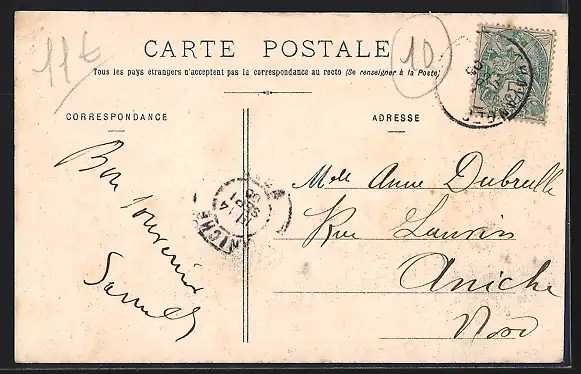 11€
10
CARTE POSTALE
Tous les pays étrangers n'acceptent pas la correspondance au recto (Se renseigner à la Poste)
CORRESPONDANCE
ADRESSE
Bon souvenir
Melle Anne Dubreulle
Rue Laurin
Aniche
Nord
ANICHE